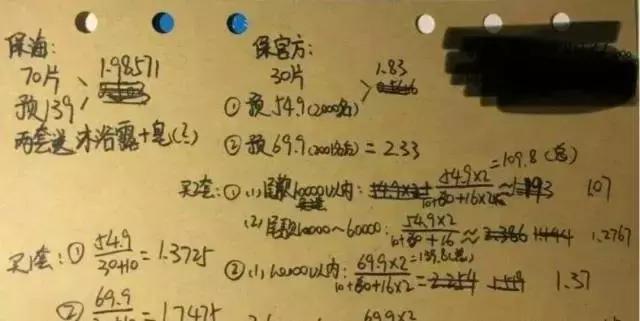 保海:
70片
1.98571
预139
两套送沐浴露+皂(?)
保官方:
30片
1.83
①预54.9(2000名)
②预69.9(2001名后)=2.33
买2套:①(1)尾款10000以内: 54.9×2/10+60+16×2 ≈ 1.07
=109.8(总)
(2)尾款10000~60000: 54.9×2/10+60+16 ≈ 1.2767
②(1)10000以内: 69.9×2/10+60+16×2 = 1.37
=139.8(总)
买1套:①54.9/30+10=1.3725
②69.9/30+10=1.7475
69.9×2